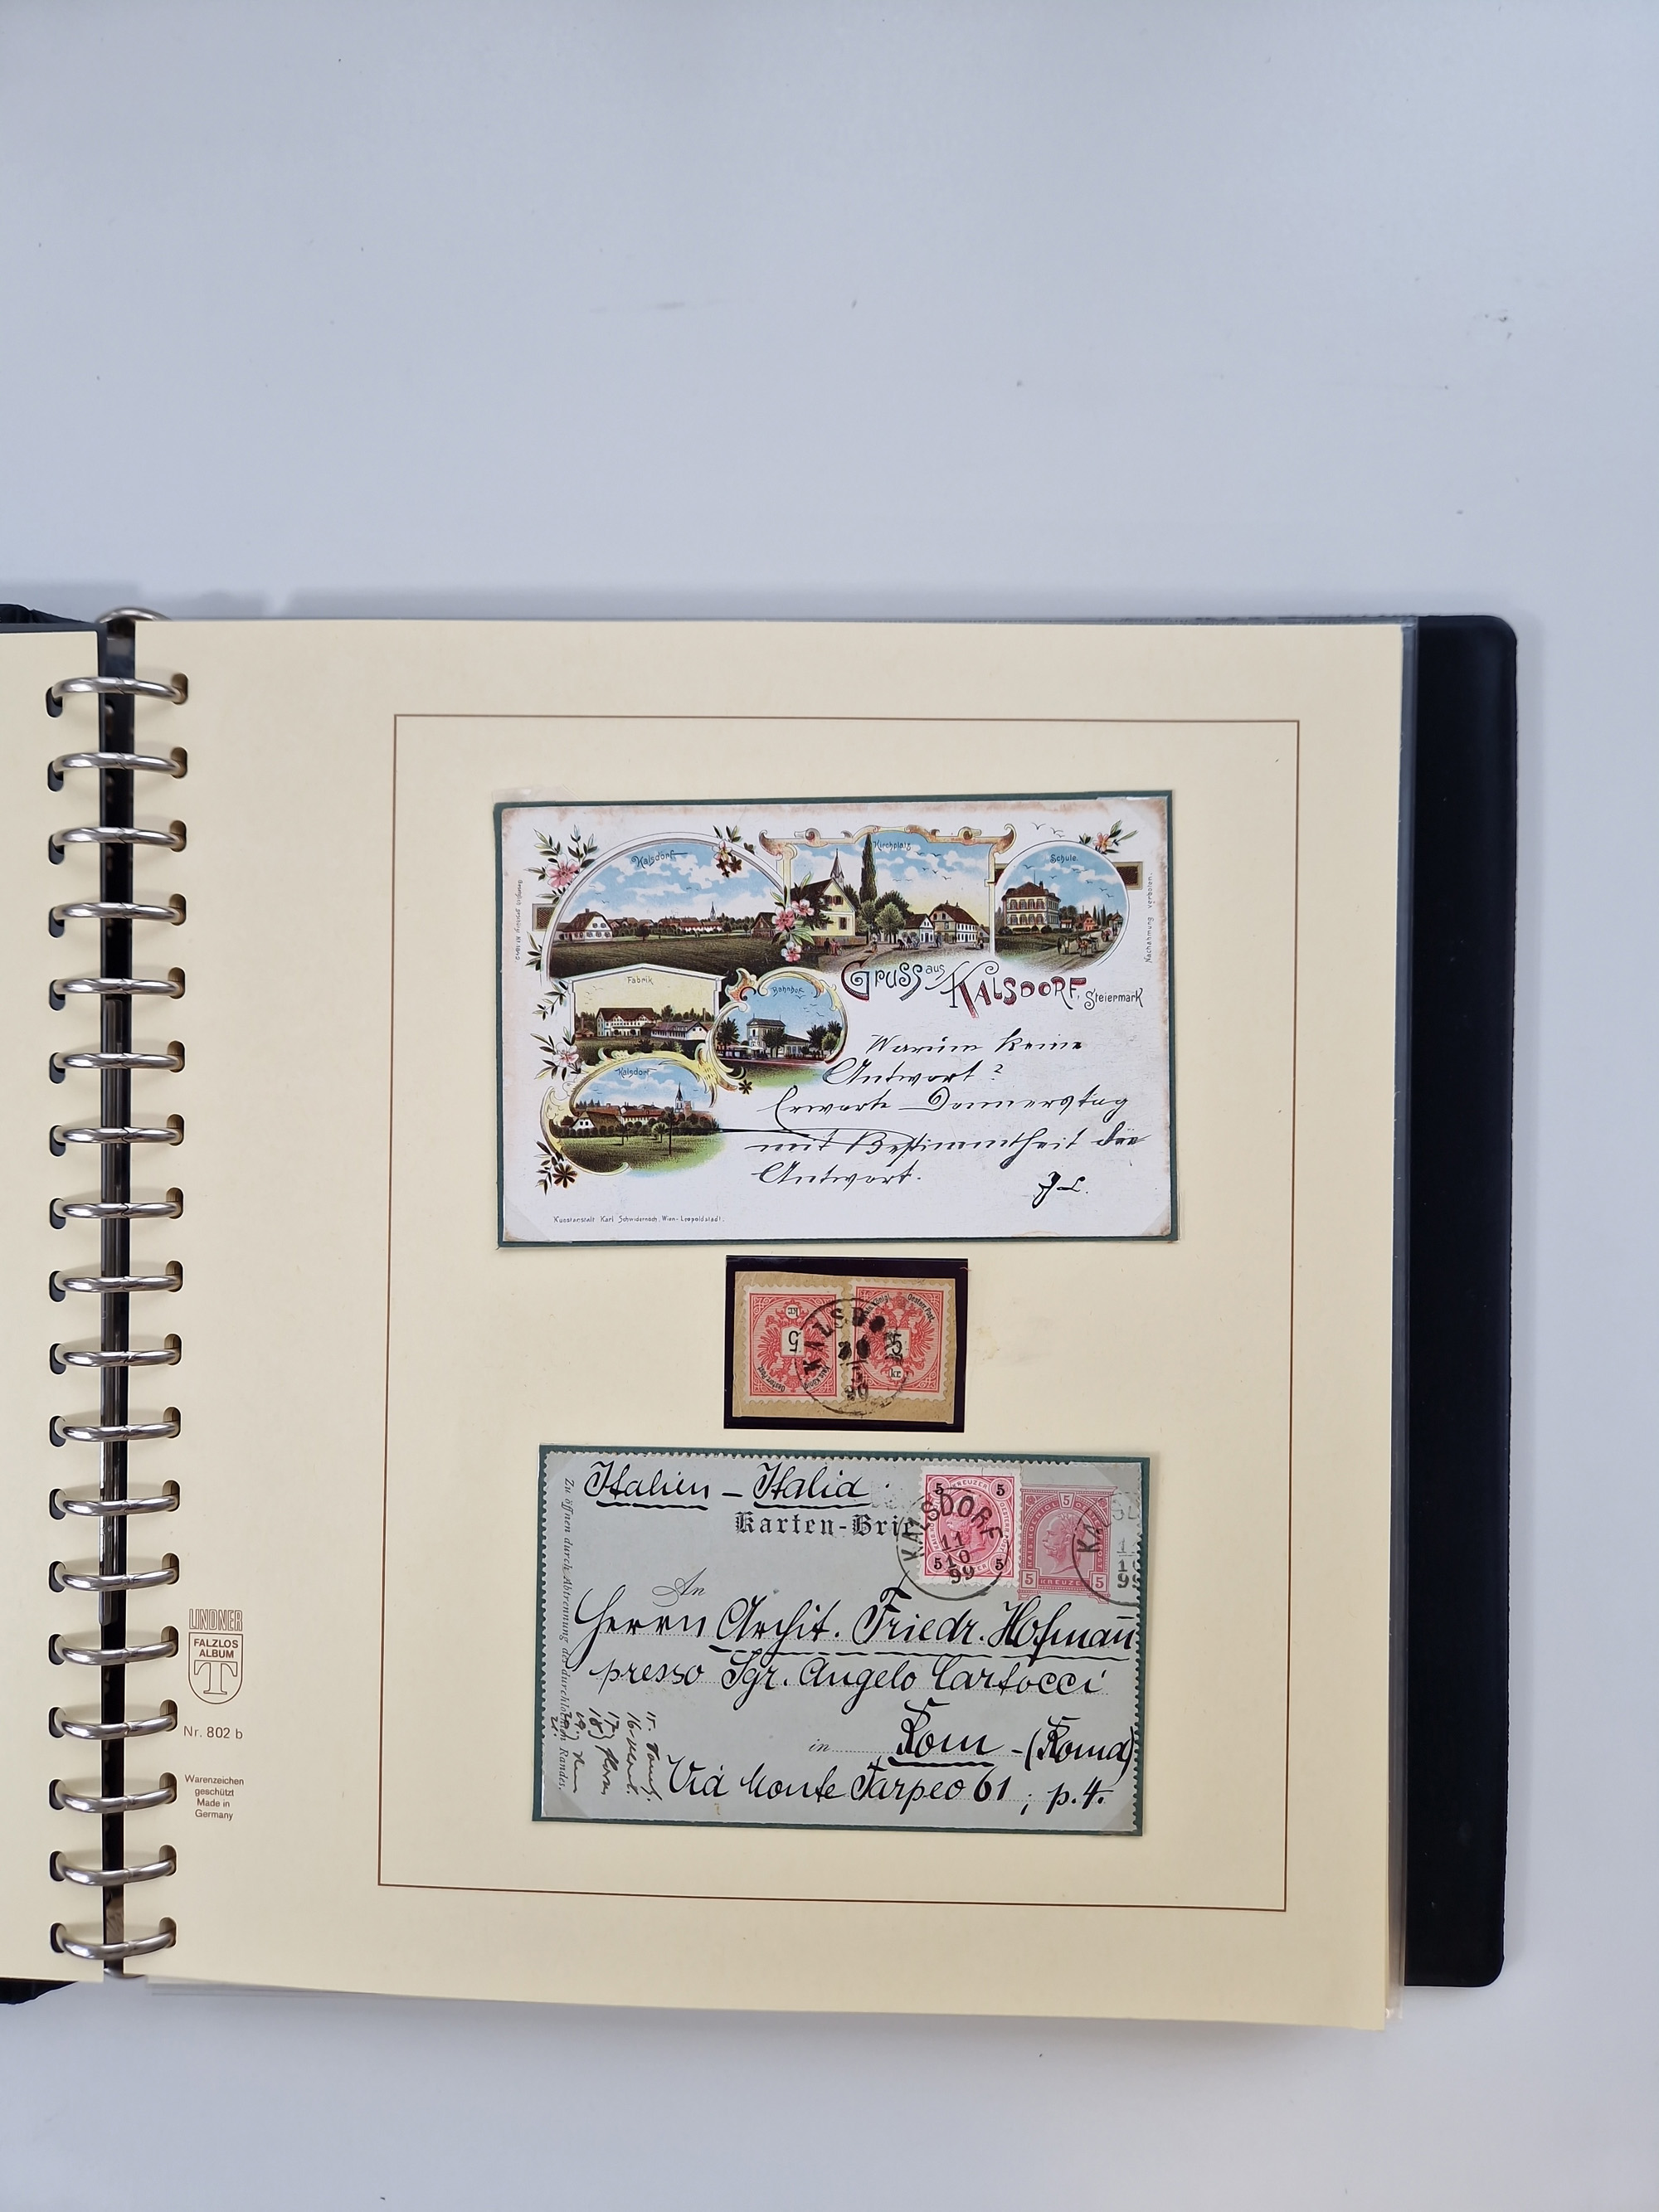 Kalsdorf
Kirchplatz
Schule.
Nachahmung verboten.
Fabrik
Bahnhof
Gruss aus KALSDORF, Steiermark
Kalsdorf
Warum keine
Antwort?
Erwarte Donnerstag
mit Bestimmtheit die
Antwort.
Kunstanstalt Karl Schwidernoch, Wien-Leopoldstadt.
5
kr
5
kr
KALSDO
90
Italien - Italia
Karten-Brie
5 KREUZER 5
5 5
KALSDORF
11
10
99
5
5 KREUZER 5
KALSD
Zu öffnen durch Abtrennung des durchlochten Randes.
An
Herrn Archit. Friedr. Hofmann
presso Sgr. Angelo Cartocci
in Rom - (Roma)
Via Monte Tarpeo 61, p. 4.
15.
16.
17.
18.
19.
21.
LINDNER
FALZLOS
ALBUM
T
Nr. 802 b
Warenzeichen
geschützt
Made in
Germany